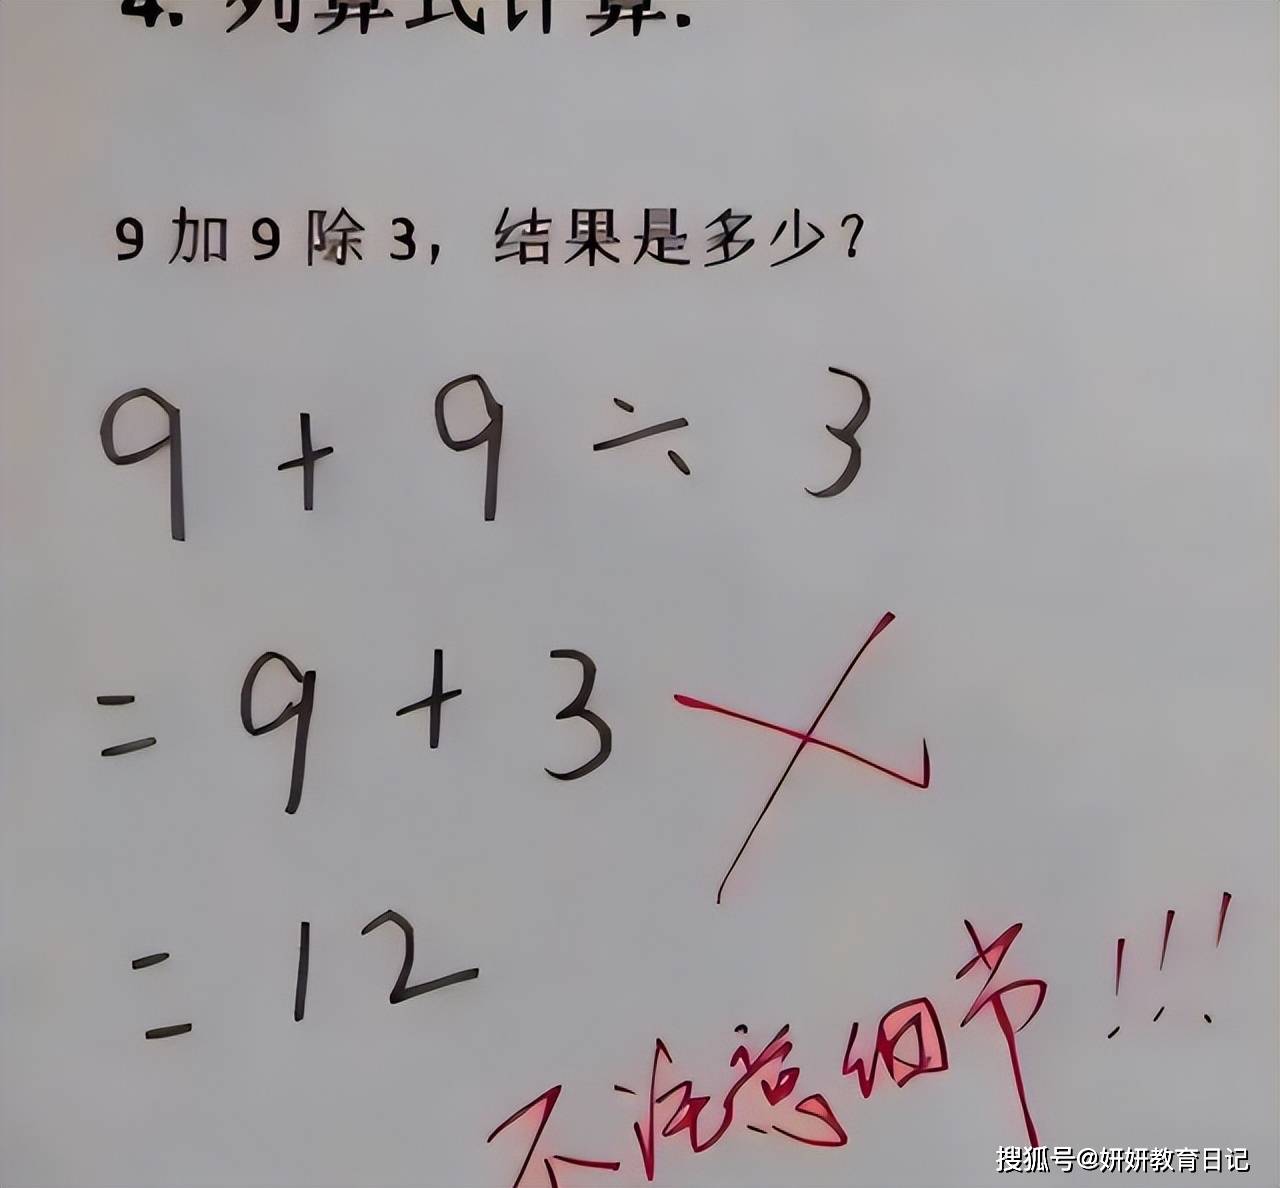 4. 列算式计算.
9 加 9 除 3，结果是多少？
9 + 9 ÷ 3
= 9 + 3
= 12
不注意细节!!!
搜狐号@妍妍教育日记